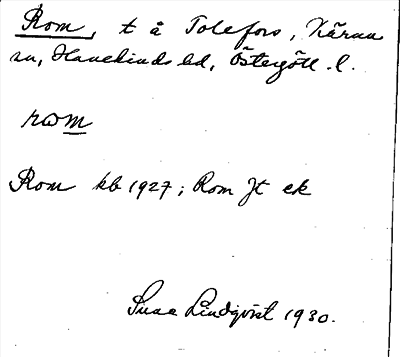 Rom, t å Tolefors, Kärna
sn, Hanekinds hd, Östergötl. l.
rωm
Rom kb 1927; Rom Jt ek
Sune Lindqvist 1930.